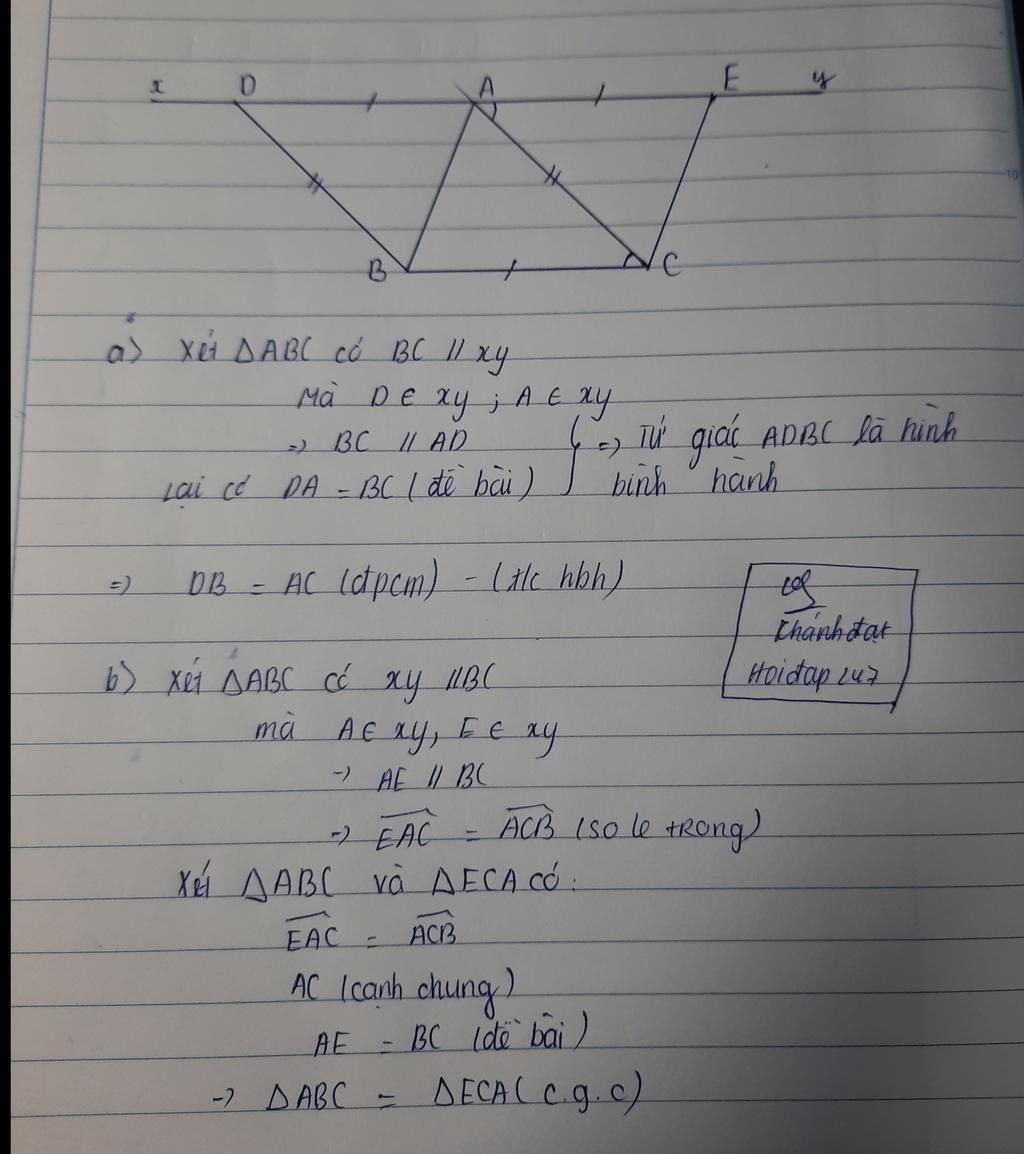 x D A E y
B C
a) Xét ΔABC có BC // xy
Mà D ∈ xy ; A ∈ xy
=> BC // AD
Lại có DA = BC (đề bài)
} => Tứ giác ADBC là hình
bình hành
=> DB = AC (đpcm) - (t/c hbh)
Khánh đạt
Hoidap247
b) Xét ΔABC có xy // BC
mà A ∈ xy, E ∈ xy
-> AE // BC
-> EAC = ACB (so le trong)
Xét ΔABC và ΔECA có:
EAC = ACB
AC (cạnh chung)
AE = BC (đề bài)
-> ΔABC = ΔECA (c.g.c)